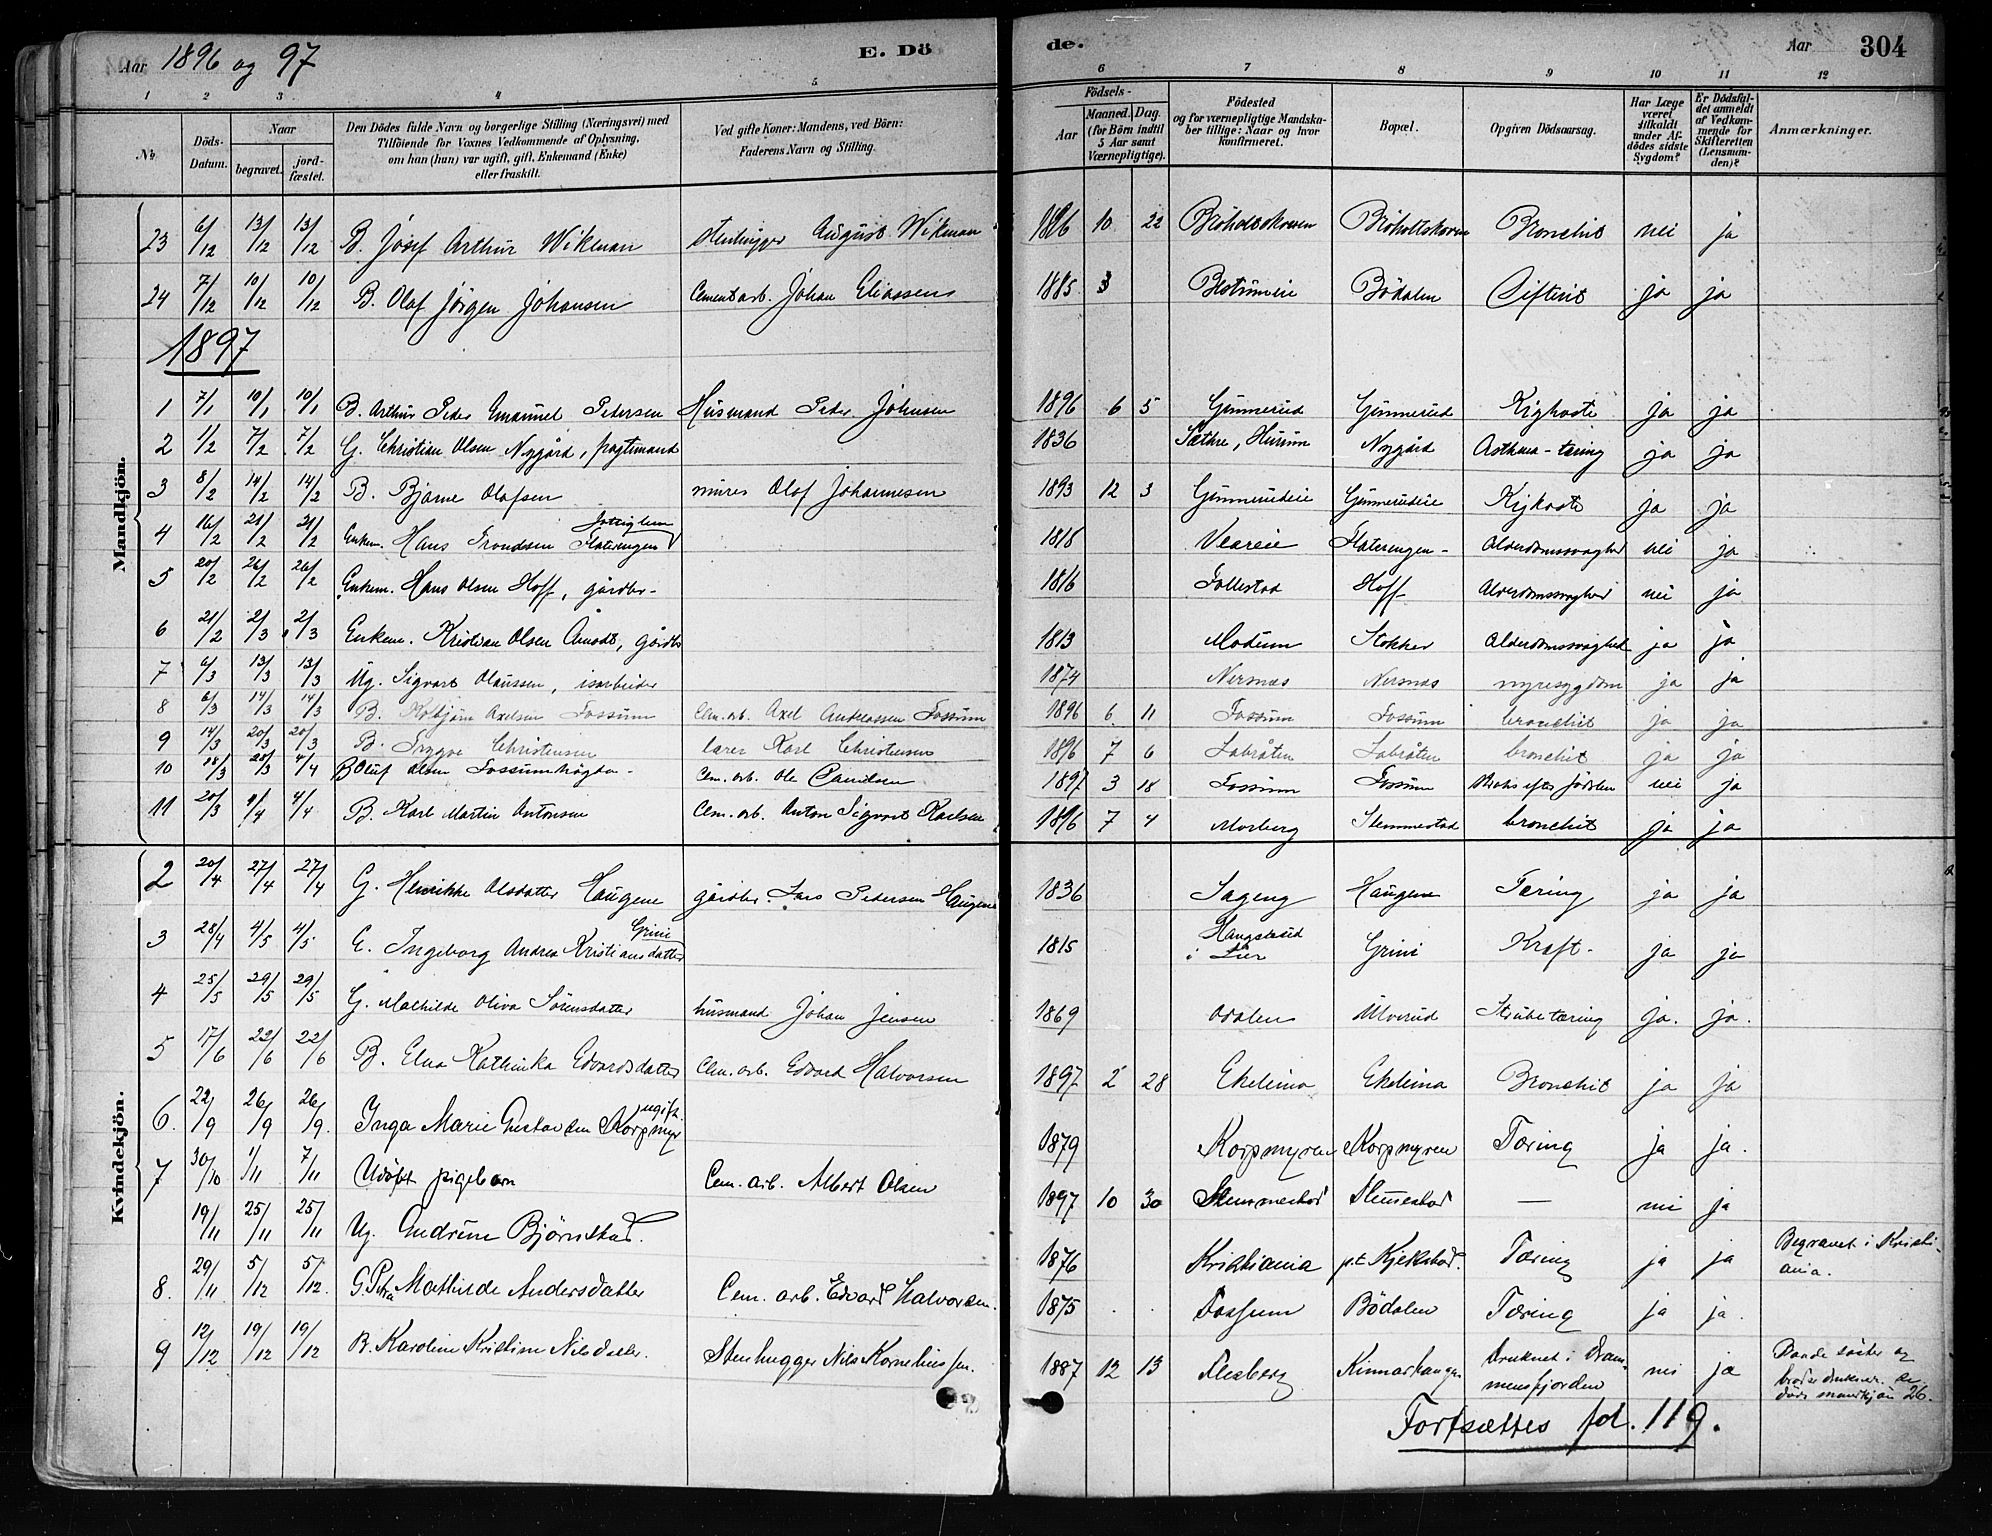 Aar 1896 og 97
E. Dö
de.
Aar
304
1 2 3 4 5 6 7 8 9 10 11 12
№ Döds-Datum. Naar begravet. jordfæstet.
Den Dödes fulde Navn og borgerlige Stilling (Næringsvei) med Tilföiende for Voxnes Vedkommende af Oplysning, om han (hun) var ugift, gift, Enkemand (Enke) eller fraskilt.
Ved gifte Koner: Mandens, ved Börn: Faderens Navn og Stilling.
Födsels- Aar Maaned. Dag. (for Börn indtil 5 Aar samt Værnepligtige).
Födested og for værnepligtige Mandskaber tillige: Naar og hvor konfirmeret.
Bopæl.
Opgiven Dödsaarsag.
Har Læge været tilkaldt under Afdödes sidste Sygdom?
Er Dödsfaldet anmeldt af Vedkommende for Skifteretten (Lensmanden)?
Anmærkninger.
Mandkjön.
23 6/12 13/12 13/12 B. Josef Arthur Wikman Stenhugger August Wikman 1896 10 22 Bröholtskoven Bröholtskoven Bronchit nei ja
24 7/12 10/12 10/12 B. Olaf Jörgen Johansen Cementarb. Johan Eliassen 1885 3 Bödalen Difterit ja ja
1897
1 7/1 10/1 10/1 B. Arthur Peder Emanuel Pedersen Husmand Peder Johnsen 1896 6 5 Gunnerud Gunnerud Kighoste ja ja
2 1/2 7/2 7/2 G. Christian Olsen Nygård, fragtmand 1836 Sæthre, Hurum Nygård Asthma-tæring ja ja
3 8/2 14/2 14/2 B. Bjarne Olafsen murer Olof Johannesen 1893 12 3 Gunnerudeie Gunnerudeie Kighoste ja ja
4 16/2 21/2 21/2 Enkem. Hans Trondsen Slaterengen 1818 Veareie Slaterengen Alderdomssvaghed nei ja
5 20/2 26/2 26/2 Enkem. Hans Olsen Hoff, gårdbr. 1816 Follestad Hoff Alderdomssvaghed nei ja
6 21/2 2/3 2/3 Enkem. Kristian Olsen Aamodt, gårdbr 1813 Modum Stokker Alderdomssvaghed ja ja
7 6/3 13/3 13/3 Ug. Sigvart Olaussen, isarbeider 1874 Nersnæs Nersnæs nyresygdom ja ja
8 6/3 14/3 14/3 B. Kolbjörn Axelsen Fossum Cem. arb. Axel Andreassen Fossum 1896 6 11 Fossum Fossum bronchit ja ja
9 14/3 20/3 20/3 B. Trygve Christensen lærer Karl Christensen 1896 7 6 Labråten Labråten bronchit ja ja
10 18/3 28/3 4/4 B Oluf Olsen Fossumhögda Cem. arb. Ole 1897 3 18 Fossum Fossum Straks efter födslen nei ja
11 20/3 4/4 4/4 B. Karl Martin Antonsen Cem. arb. Anton Sigvart Karlsen 1896 7 4 Morberg Slemmestad bronchit ja ja
Kvindekjön.
2 20/4 27/4 27/4 G. Henrikke Olsdatter Haugene gårdbr. Lars Pedersen Haugene 1836 Sageng Haugene Tæring ja ja
3 28/4 4/5 4/5 E. Ingeborg Andrea Kristiansdatter Grini 1815 i Lier Grini Kræft ja ja
4 25/5 29/5 29/5 G. Mathilde Oliva Sörensdatter husmand Johan Jensen 1869 Odalen Ulverud Strubetæring ja. ja.
5 17/6 22/6 22/6 B. Elna Kathinka Edvardsdatter Cem. arb. Edvard Halvorsen 1897 2 28 Ekelina Ekelina Bronchit ja ja
6. 22/9 26/9 26/9. Inga Marie Gustavsen Korpmyr ugift. 1879 Korpmyren Korpmyren Tæring ja ja.
7 30/10 1/11 7/11 Udöbt pigebarn Cem. arb. Albert Olsen 1897 10 30 Slemmestad Slemestad — nei ja
19/11 25/11 25/11 Ug. Gudrun Björnstad. 1876 Kristiania p.t. Kjekstad. Tæring ja ja Begravet i Kristiania.
8. 29/11 5/12 5/12. G. Petra Mathilde Andersdatter Cem. arb. Edvard Halvorsen. 1875 Fossum Bödalen Tæring ja ja.
9 12/12 19/12 19/12 B. Karoline Kristine Nilsdatter. Stenhugger Nils Korneliussen. 1887 12 13 Flesberg Kinnarhaugen Druknet i Drammensfjorden nei ja Baade söster og broder druknet. Se döde mandkjön 26.
Fortsættes fol. 119.